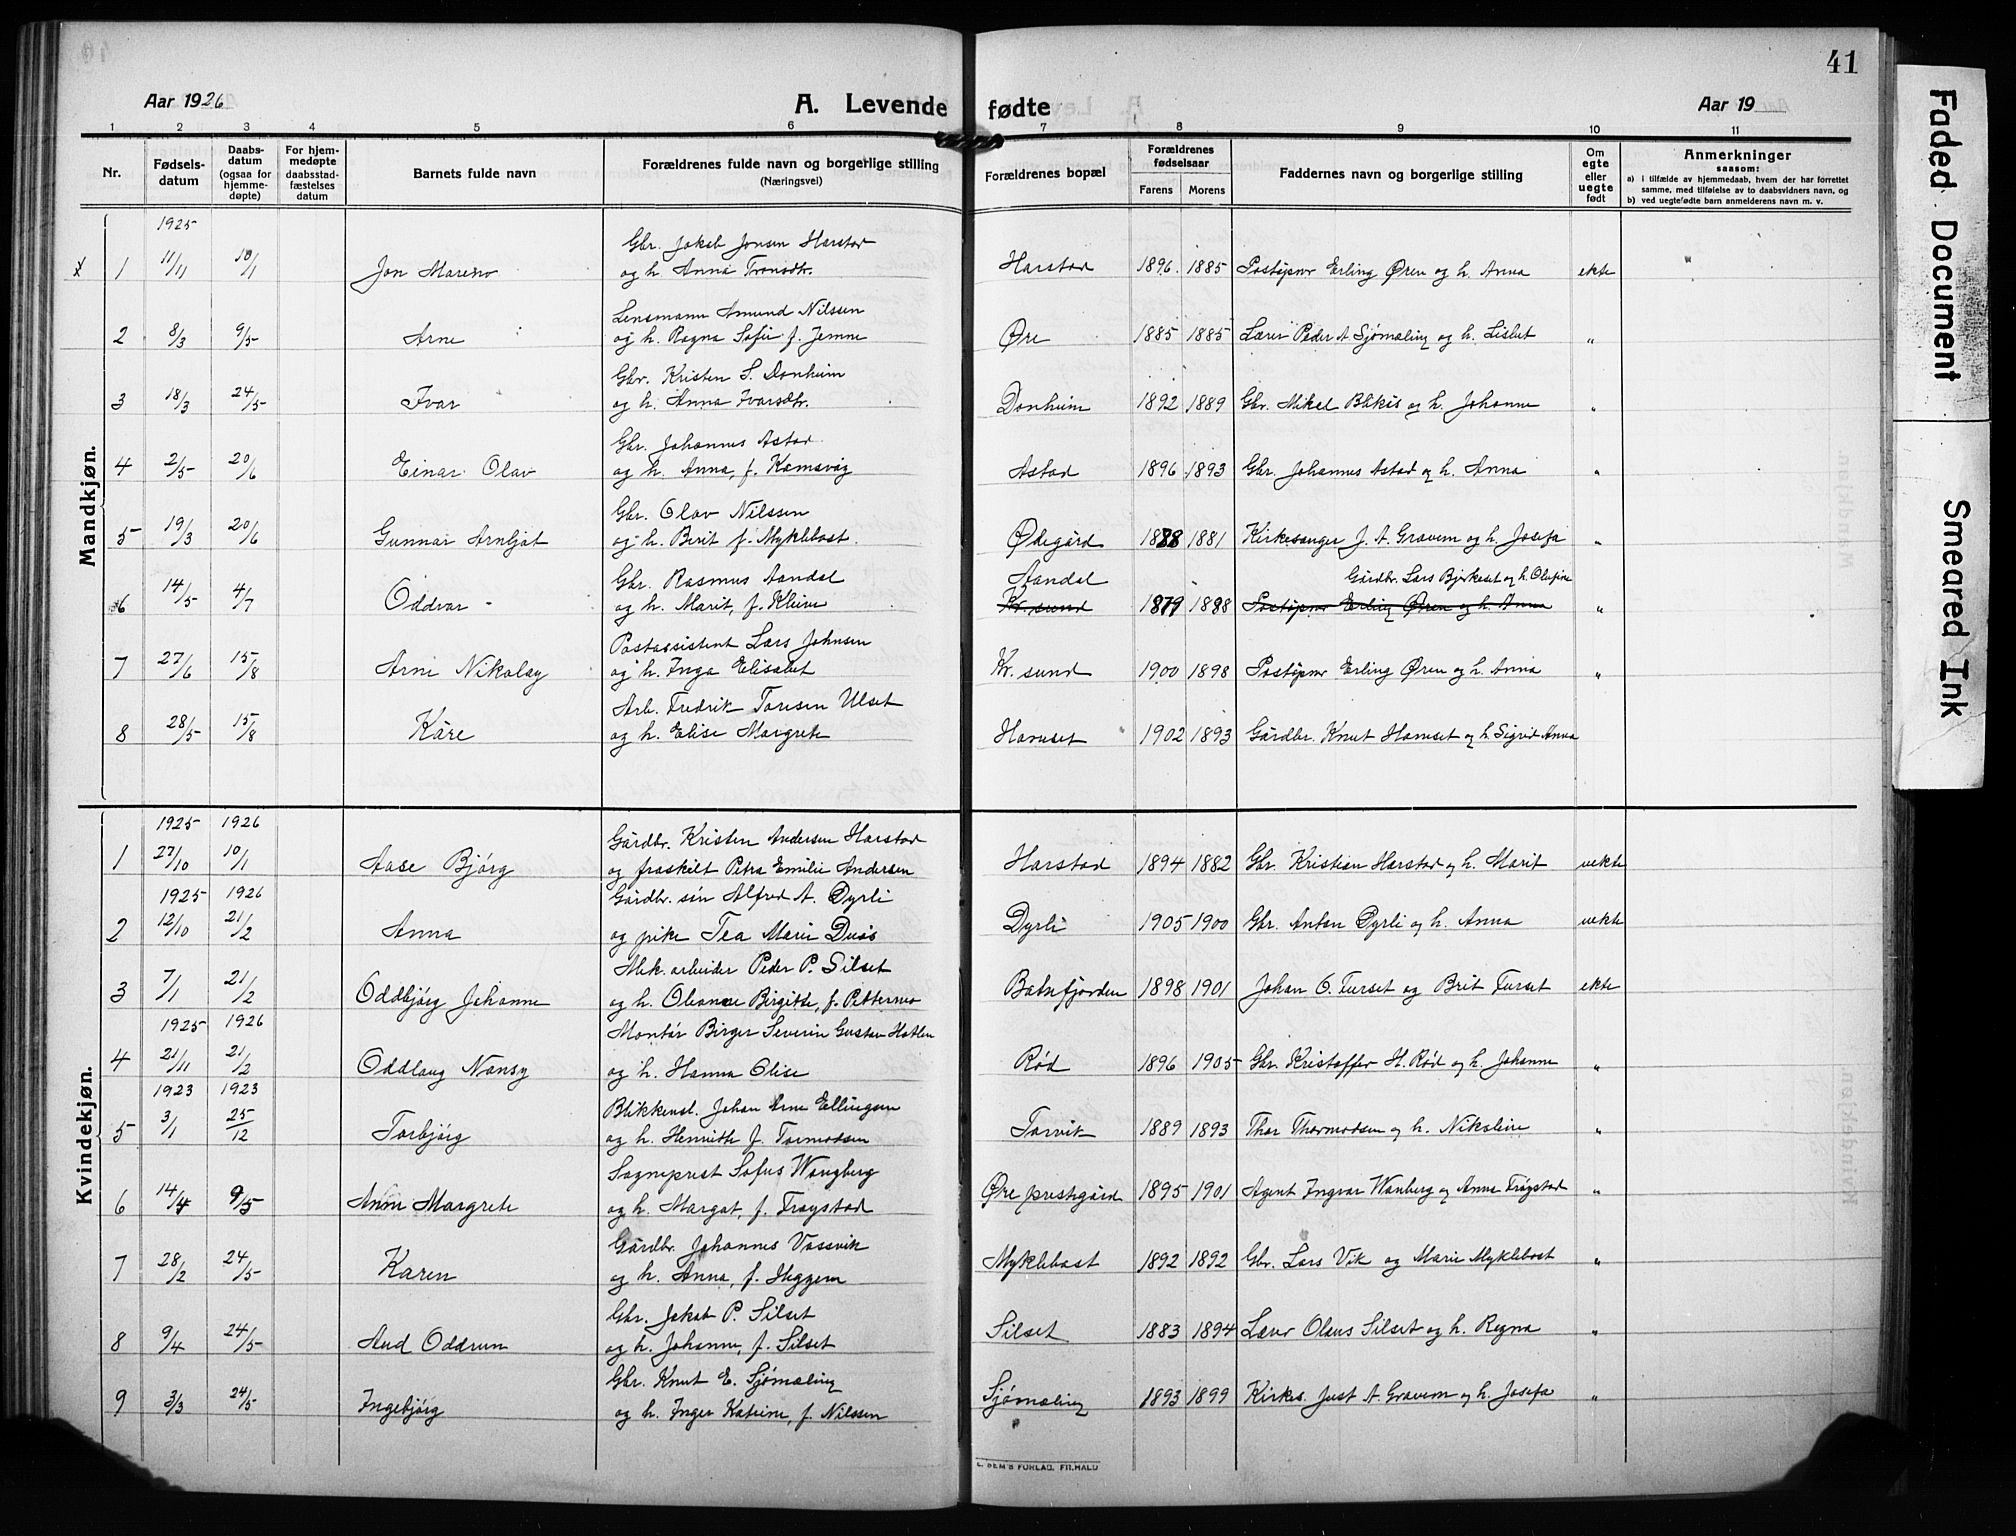 41
Aar 1926 A. Levende fødte Aar 19
1 2 3 4 5 6 7 8 9 10 11
Nr. Fødsels-datum Daabs-datum (ogsaa for hjemme-døpte) For hjem-medøpte daabsstad-fæstelses datum Barnets fulde navn Forældrenes fulde navn og borgerlige stilling (Næringsvei) Forældrenes bopæl Forældrenes fødselsaar Farens Morens Faddernes navn og borgerlige stilling Om egte eller uegte født Anmerkninger saasom:
a) i tilfælde av hjemmedaab, hvem der har forrettet samme, med tilføielse av to daabsvidners navn, og
b) ved uegtefødte barn anmelderens navn m. v.
Mandkjøn.
1925
Gbr. Jakob Jonsen Harstad
x 1 11/11 10/1 Jon Mareno og h. Anna Tronsdtr. Harstad 1896 1885 Postøpnr Erling Øren og h. Anna ekte
Lensmann Amund Nilssen
2 8/3 9/5 Arne og h. Ragna Sofie f. Jemne Øre 1885 1885 Lærer Peder A Sjømæling og h. Lisbet "
Gbr. Kristen S. Donheim
3 18/3 24/5 Ivar og h. Anna Ivarsdtr. Donheim 1892 1889 Gbr. Mikal Blikås og h. Johanne "
Gbr. Johannes Astad
4 2/5 20/6 Einar Olav og h. Anna, f. Kamsvåg Astad 1896 1893 Gbr. Johannes Astad og h. Anna "
Gbr. Olav Nilssen
5 19/3 20/6 Gunnar Arnljot og h. Berit f. Myklebost. Ødegård 1888 1881 Kirkesanger J. A. Gravem og h. Josefa "
Gbr. Rasmus Aandal Aandal Gårdbr. Lars Bjerkeset og h. Olufine
6 14/5 4/7 Oddvar og h. Marit, f. Kleive Kr. sund 1879 1888 Postøpnr Erling Øren og h. Anna "
Postassistent Lars Johnsen
7 27/6 15/8 Arne Nikolay og h. Inga Elisabet Kr. sund 1900 1898 Postøpnr Erling Øren og h. Anna "
Arb. Fredrik Toresen Ulset
8 28/5 15/8 Kåre og h. Elise Margrete Hamset 1902 1893 Gårdbr. Knut Hamset og h Sigrid Anna
Kvindekjøn.
1925 1926 Gårdbr. Kristen Andersen Harstad
1 27/10 10/1 Aase Bjørg og fraskilt Petra Emilie Andersen Harstad 1894 1882 Gbr. Kristian Harstad og h. Marit uekte
1925 1926 Gårdbr. søn Alfred A. Dyrli
2 12/10 21/2 Anna og pike Tea Marie Duås Dyrli 1905 1900 Gbr. Anton Dyrli og h. Anna uekte
Mek. arbeider Peder P. Silset
3 7/1 21/2 Oddbjørg Johanne og h. Oleanne Birgitte, f. Petternes Batnfjorden 1898 1901 Johan O. Furset og Brit Furset ekte
1925 1926 Montør Birger Severin Gustav Hatlen
4 21/11 21/2 Oddlaug Nansy og h. Hanna Olise Rød 1896 1905 Gbr. Kristoffer H. Rød og h. Johanne "
1923 1923 Blikkensl. Johan Arne Ellingsen
5 3/1 25/12 Torbjørg og h. Henritte f. Tormodsen Torvik 1889 1893 Thor Thormodsen og h. Nikoline "
Sogneprest Sofus Wangberg
6 14/4 9/5 Anne Margrete og h. Margot, f. Frøystad Øre prestegård 1895 1901 Agent Ingvar Wanberg og Anna Frøystad "
Gårdbr. Johannes Vassvik
7 28/2 24/5 Karen og h. Anna, f. Heggem Myklebost 1892 1892 Gbr. Lars Vik og Marie Myklebost "
Gbr. Jakob P. Silset
8 9/4 24/5 Aud Oddrun og h. Johanne, f. Silset Silset 1883 1894 Lærer Olaus Silset og h. Regna "
Gbr. Knut E. Sjømæling
9 3/3 24/5 Ingebjørg og h. Inger Katrine, f. Nilssen Sjømæling 1893 1899 Kirkes. Just A. Gravem og h. Josefa "
SEM'S FORLAG, FR.HALD
Faded Document
Smeared Ink